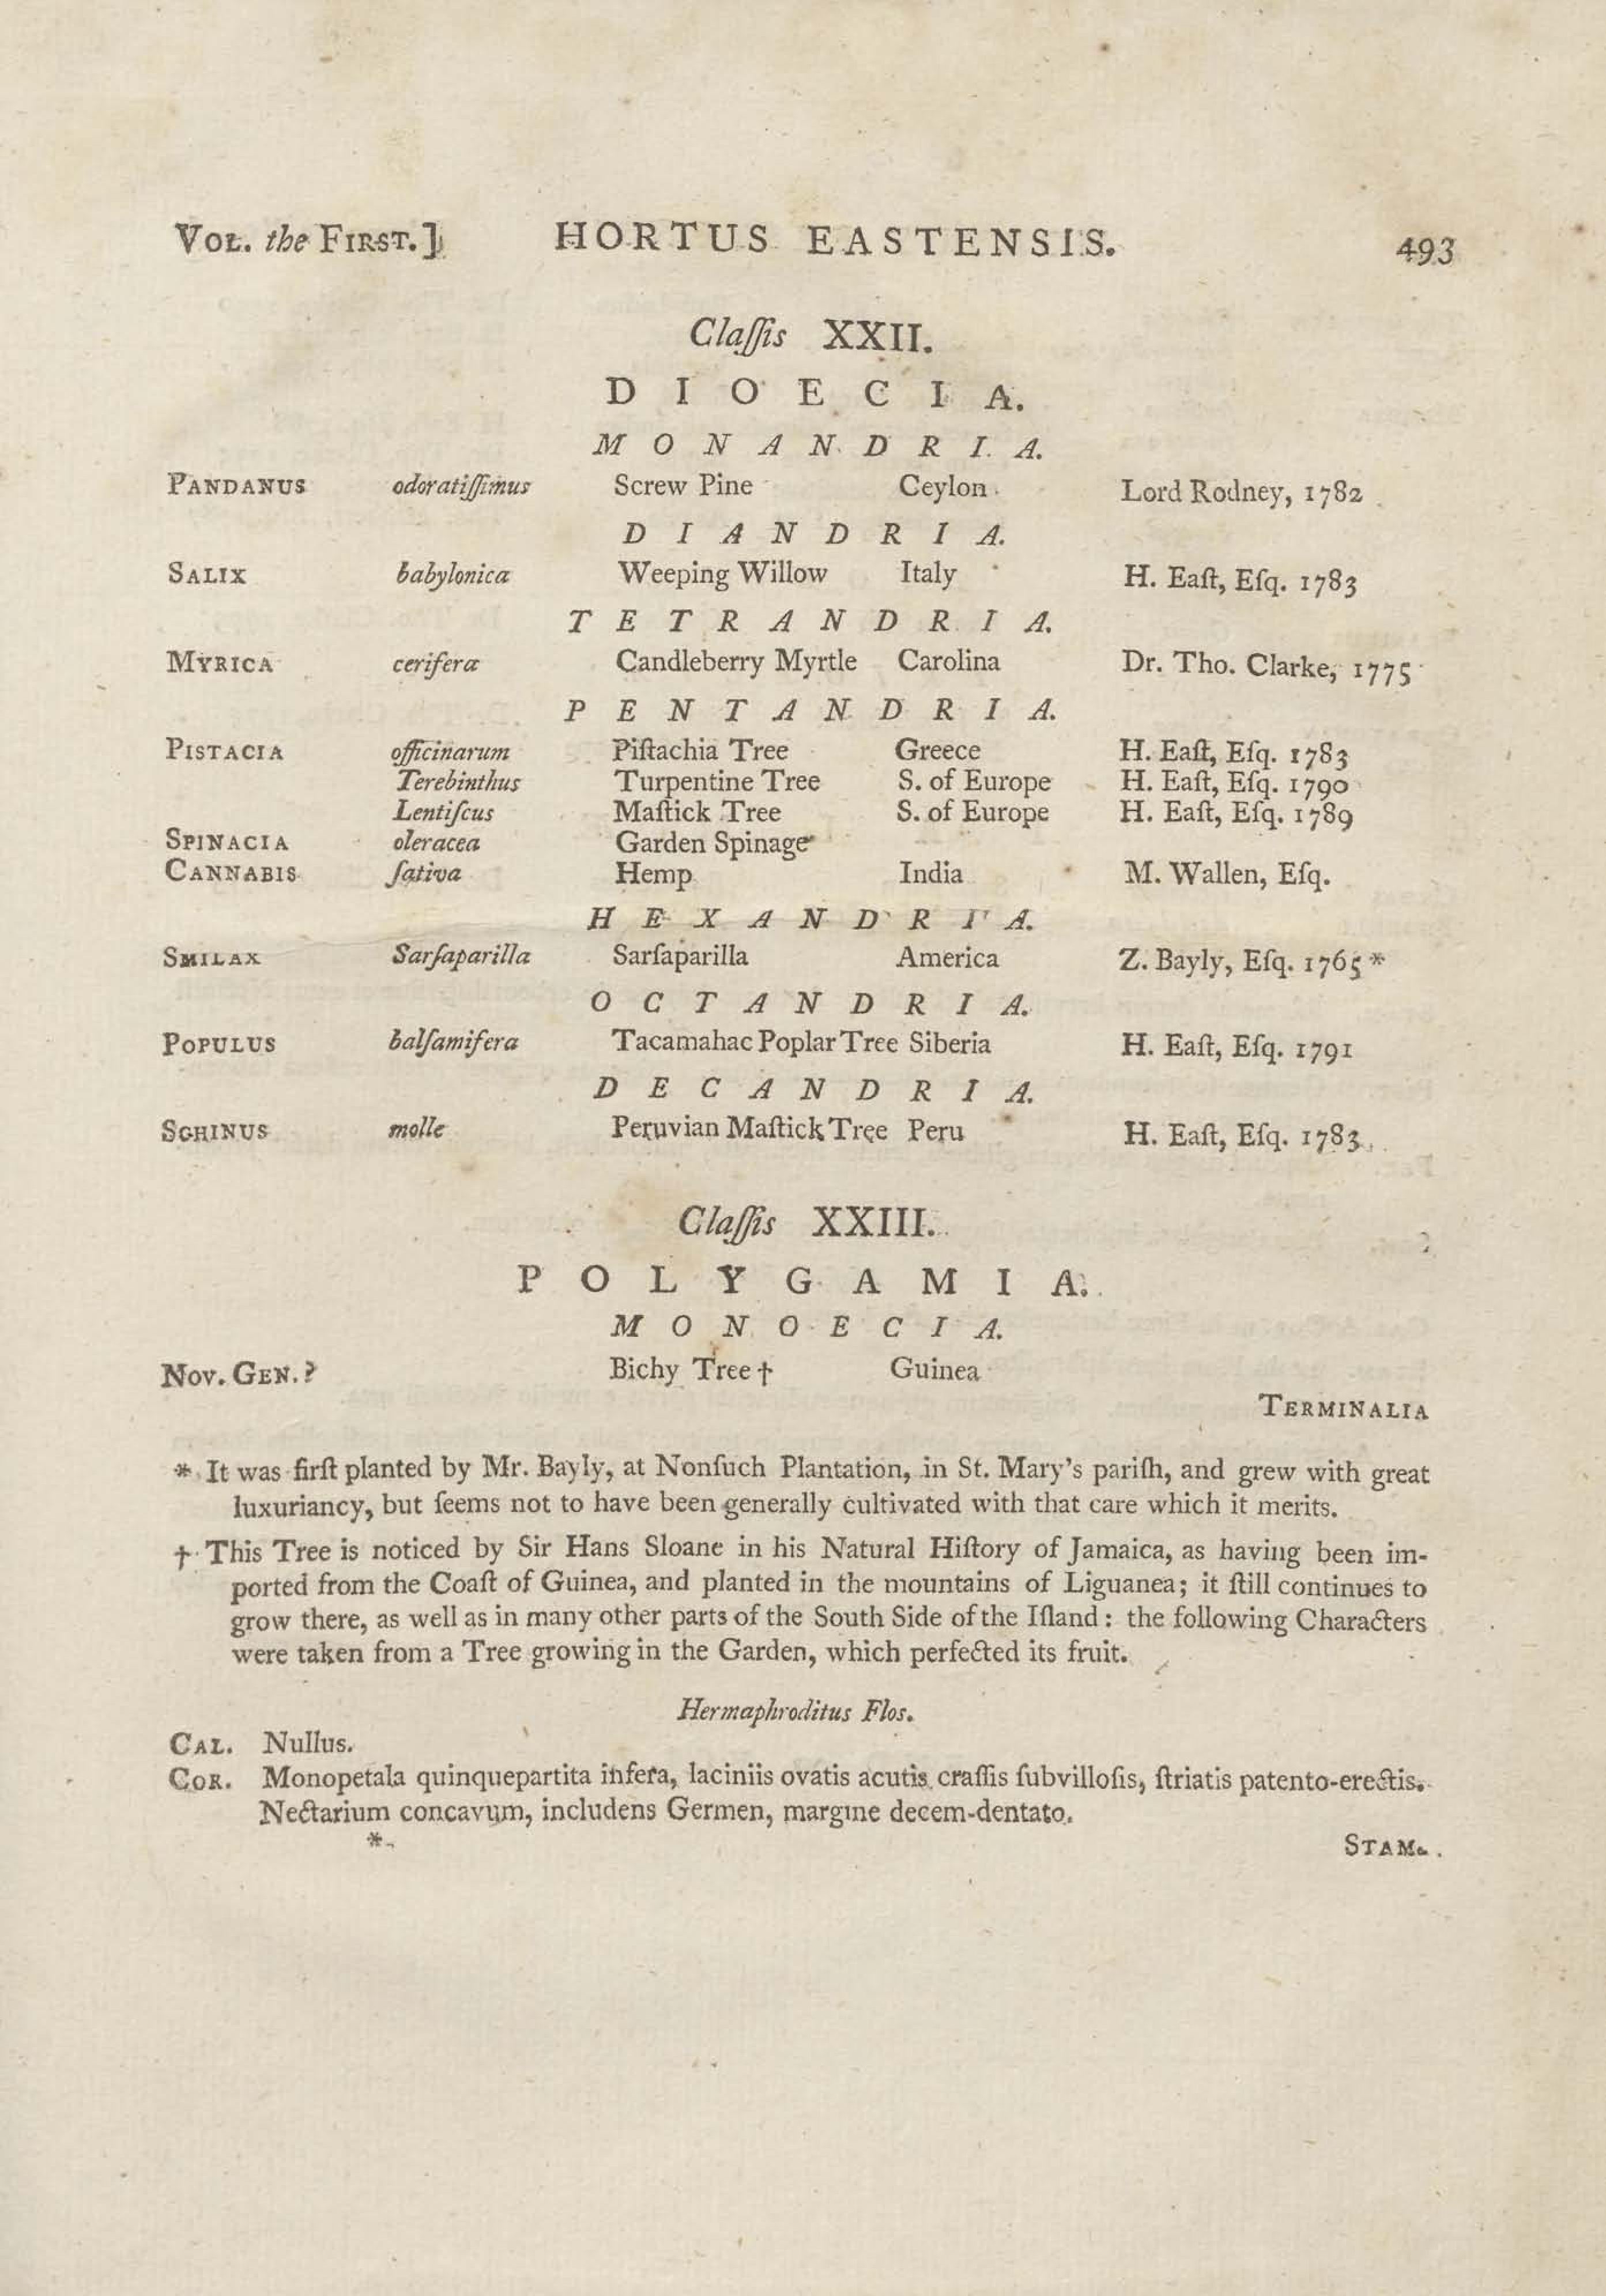 VOL. the FIRST.] HORTUS EASTENSIS. 493
Claſſis XXII.
DIOECIA.
MONANDRIA.
PANDANUS odoratiſſimus Screw Pine Ceylon Lord Rodney, 1782
DIANDRIA.
SALIX babylonica Weeping Willow Italy H. Eaſt, Eſq. 1783
TETRANDRIA.
MYRICA cerifera Candleberry Myrtle Carolina Dr. Tho. Clarke, 1775
PENTANDRIA.
PISTACIA officinarum Piſtachia Tree Greece H. Eaſt, Eſq. 1783
Terebinthus Turpentine Tree S. of Europe H. Eaſt, Eſq. 1790
Lentiſcus Maſtick Tree S. of Europe H. Eaſt, Eſq. 1789
SPINACIA oleracea Garden Spinage
CANNABIS ſativa Hemp India M. Wallen, Eſq.
HEXANDRIA.
SMILAX Sarſaparilla Sarſaparilla America Z. Bayly, Eſq. 1765 *
OCTANDRIA.
POPULUS balſamifera Tacamahac Poplar Tree Siberia H. Eaſt, Eſq. 1791
DECANDRIA.
SCHINUS molle Peruvian Maſtick Tree Peru H. Eaſt, Eſq. 1783
Claſſis XXIII.
POLYGAMIA.
MONOECIA.
NOV. GEN.? Bichy Tree † Guinea
TERMINALIA
* It was firſt planted by Mr. Bayly, at Nonſuch Plantation, in St. Mary's pariſh, and grew with great
luxuriancy, but ſeems not to have been generally cultivated with that care which it merits.
† This Tree is noticed by Sir Hans Sloane in his Natural Hiſtory of Jamaica, as having been im-
ported from the Coaſt of Guinea, and planted in the mountains of Liguanea; it ſtill continues to
grow there, as well as in many other parts of the South Side of the Iſland: the following Characters
were taken from a Tree growing in the Garden, which perfected its fruit.
Hermaphroditus Flos.
CAL. Nullus.
COR. Monopetala quinquepartita infera, laciniis ovatis acutis craſſis ſubvilloſis, ſtriatis patento-erectis.
Nectarium concavum, includens Germen, margine decem-dentato.
*
STAM.